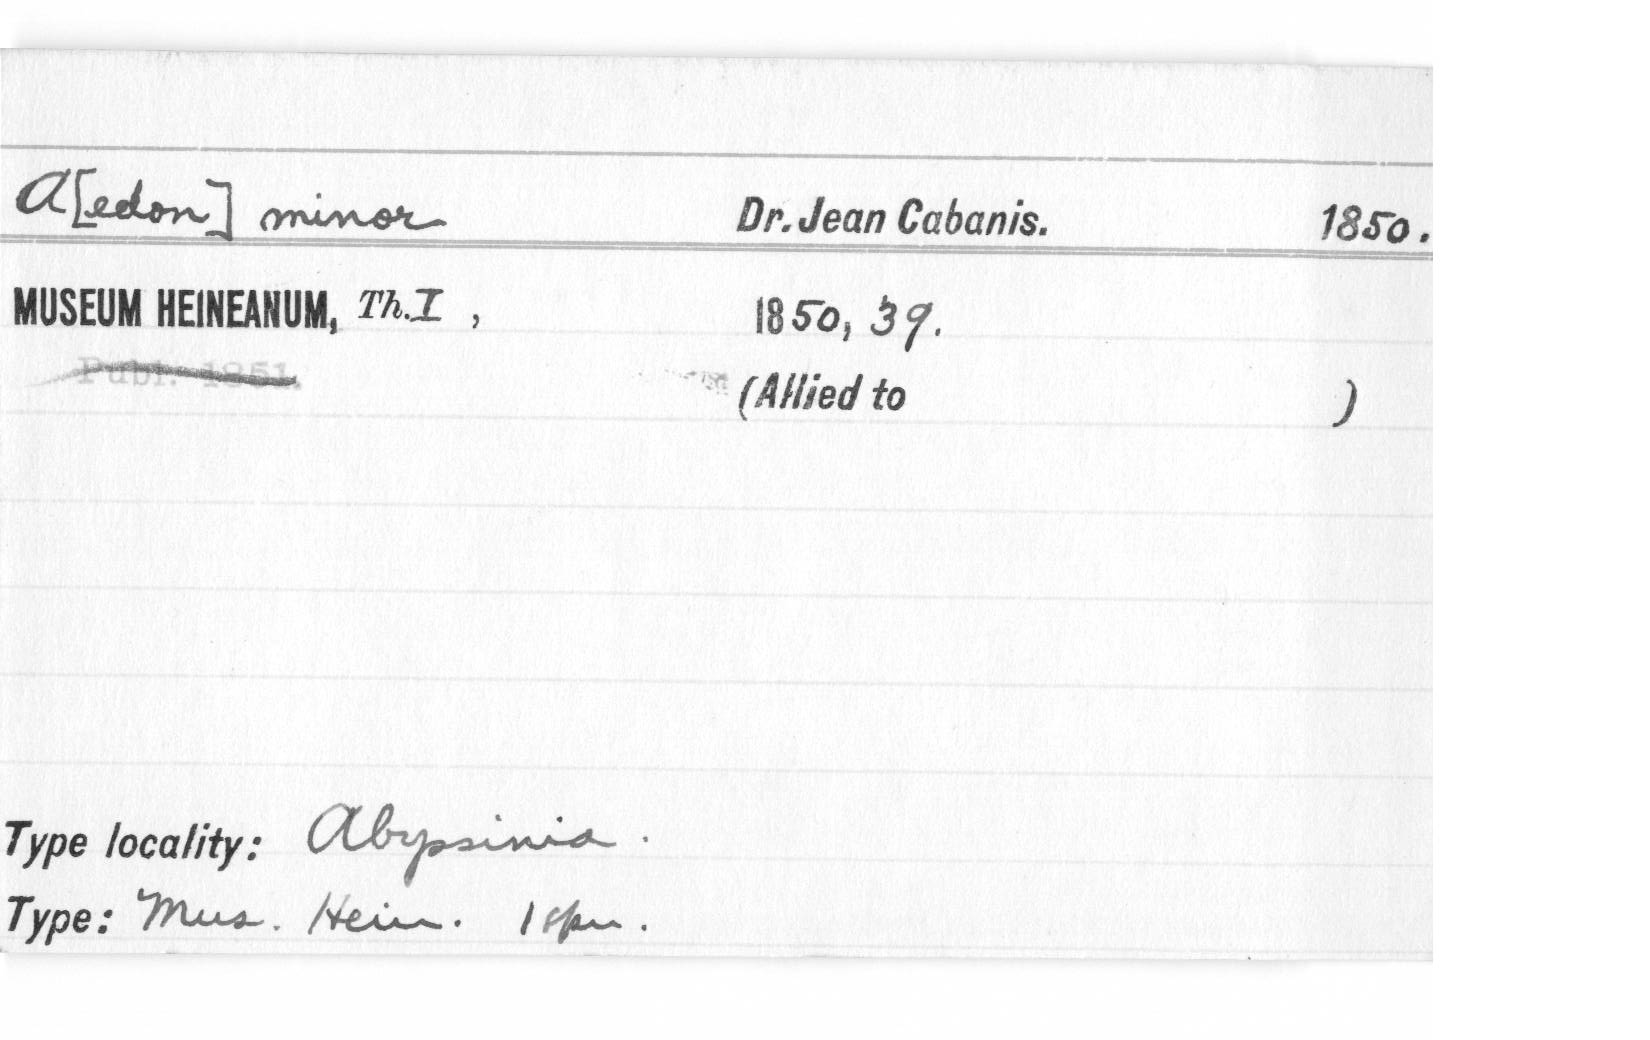 A[edon] minor Dr. Jean Cabanis. 1850.
MUSEUM HEINEANUM, Th. I , 1850, 39.
Publ. 1851. (Allied to )
Type locality: Abyssinia .
Type: Mus. Hein. 1 spm .